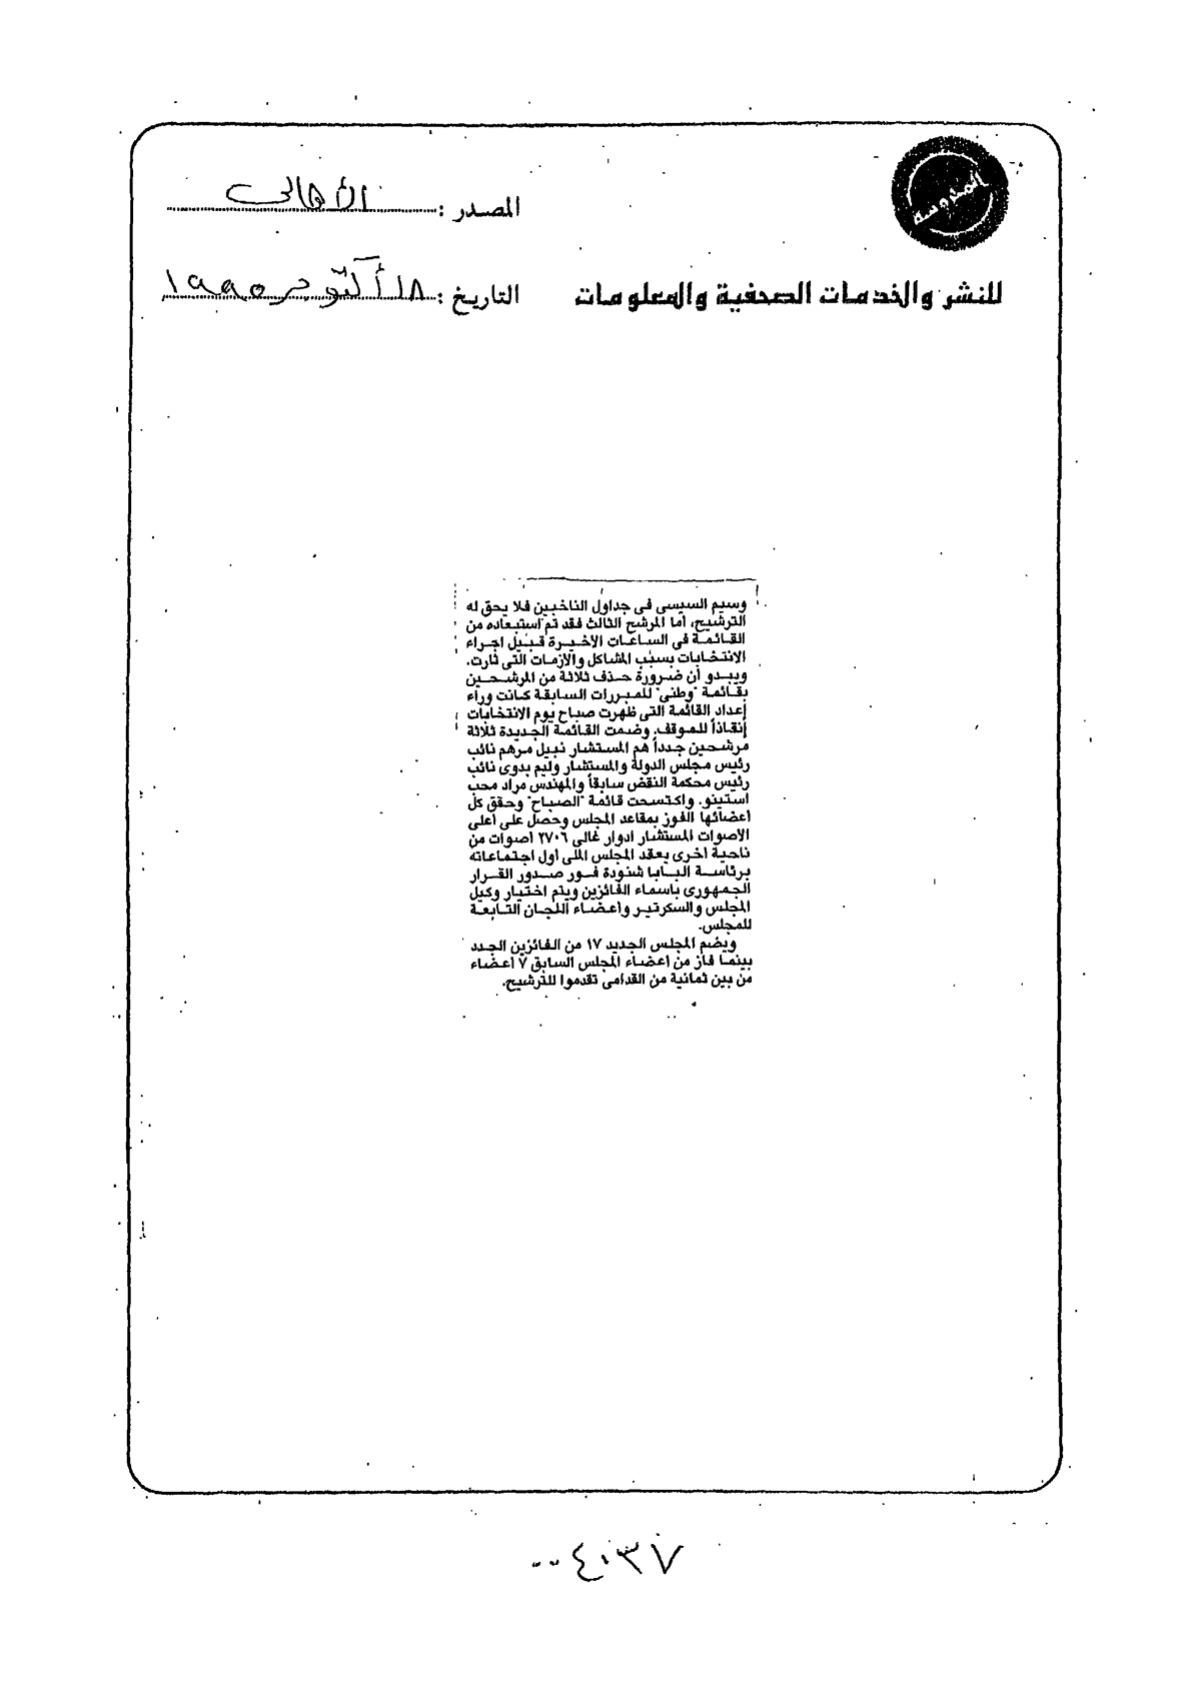 المحروسة
المصدر : الأهالى
للنشر والخدمات الصحفية والمعلومات
التاريخ : ١٨ أكتوبر ١٩٩٥
وسيم السيسى فى جداول الناخبين فلا يحق له
الترشيح، أما المرشح الثالث فقد تم استبعاده من
القائمة فى الساعات الأخيرة قبيل اجراء
الانتخابات بسبب المشاكل والازمات التى ثارت.
ويبدو أن ضرورة حذف ثلاثة من المرشحين
بقائمة "وطنى" للمبررات السابقة كانت وراء
إعداد القائمة التى ظهرت صباح يوم الانتخابات
إنقاذاً للموقف. وضمت القائمة الجديدة ثلاثة
مرشحين جدداً هم المستشار نبيل مرهم نائب
رئيس مجلس الدولة والمستشار وليم بدوى نائب
رئيس محكمة النقض سابقاً والمهندس مراد محب
استينو. واكتسحت قائمة "الصباح" وحقق كل
اعضائها الفوز بمقاعد المجلس وحصل على أعلى
الاصوات المستشار ادوار غالى ٢٧٠٦ اصوات من
ناحية اخرى يعقد المجلس الملى اول اجتماعاته
برئاسة البابا شنودة فور صدور القرار
الجمهورى باسماء الفائزين ويتم اختيار وكيل
المجلس والسكرتير واعضاء اللجان التابعة
للمجلس.
ويضم المجلس الجديد ١٧ من الفائزين الجدد
بينما فاز من اعضاء المجلس السابق ٧ اعضاء
من بين ثمانية من القدامى تقدموا للترشيح.
٤٠٣٧